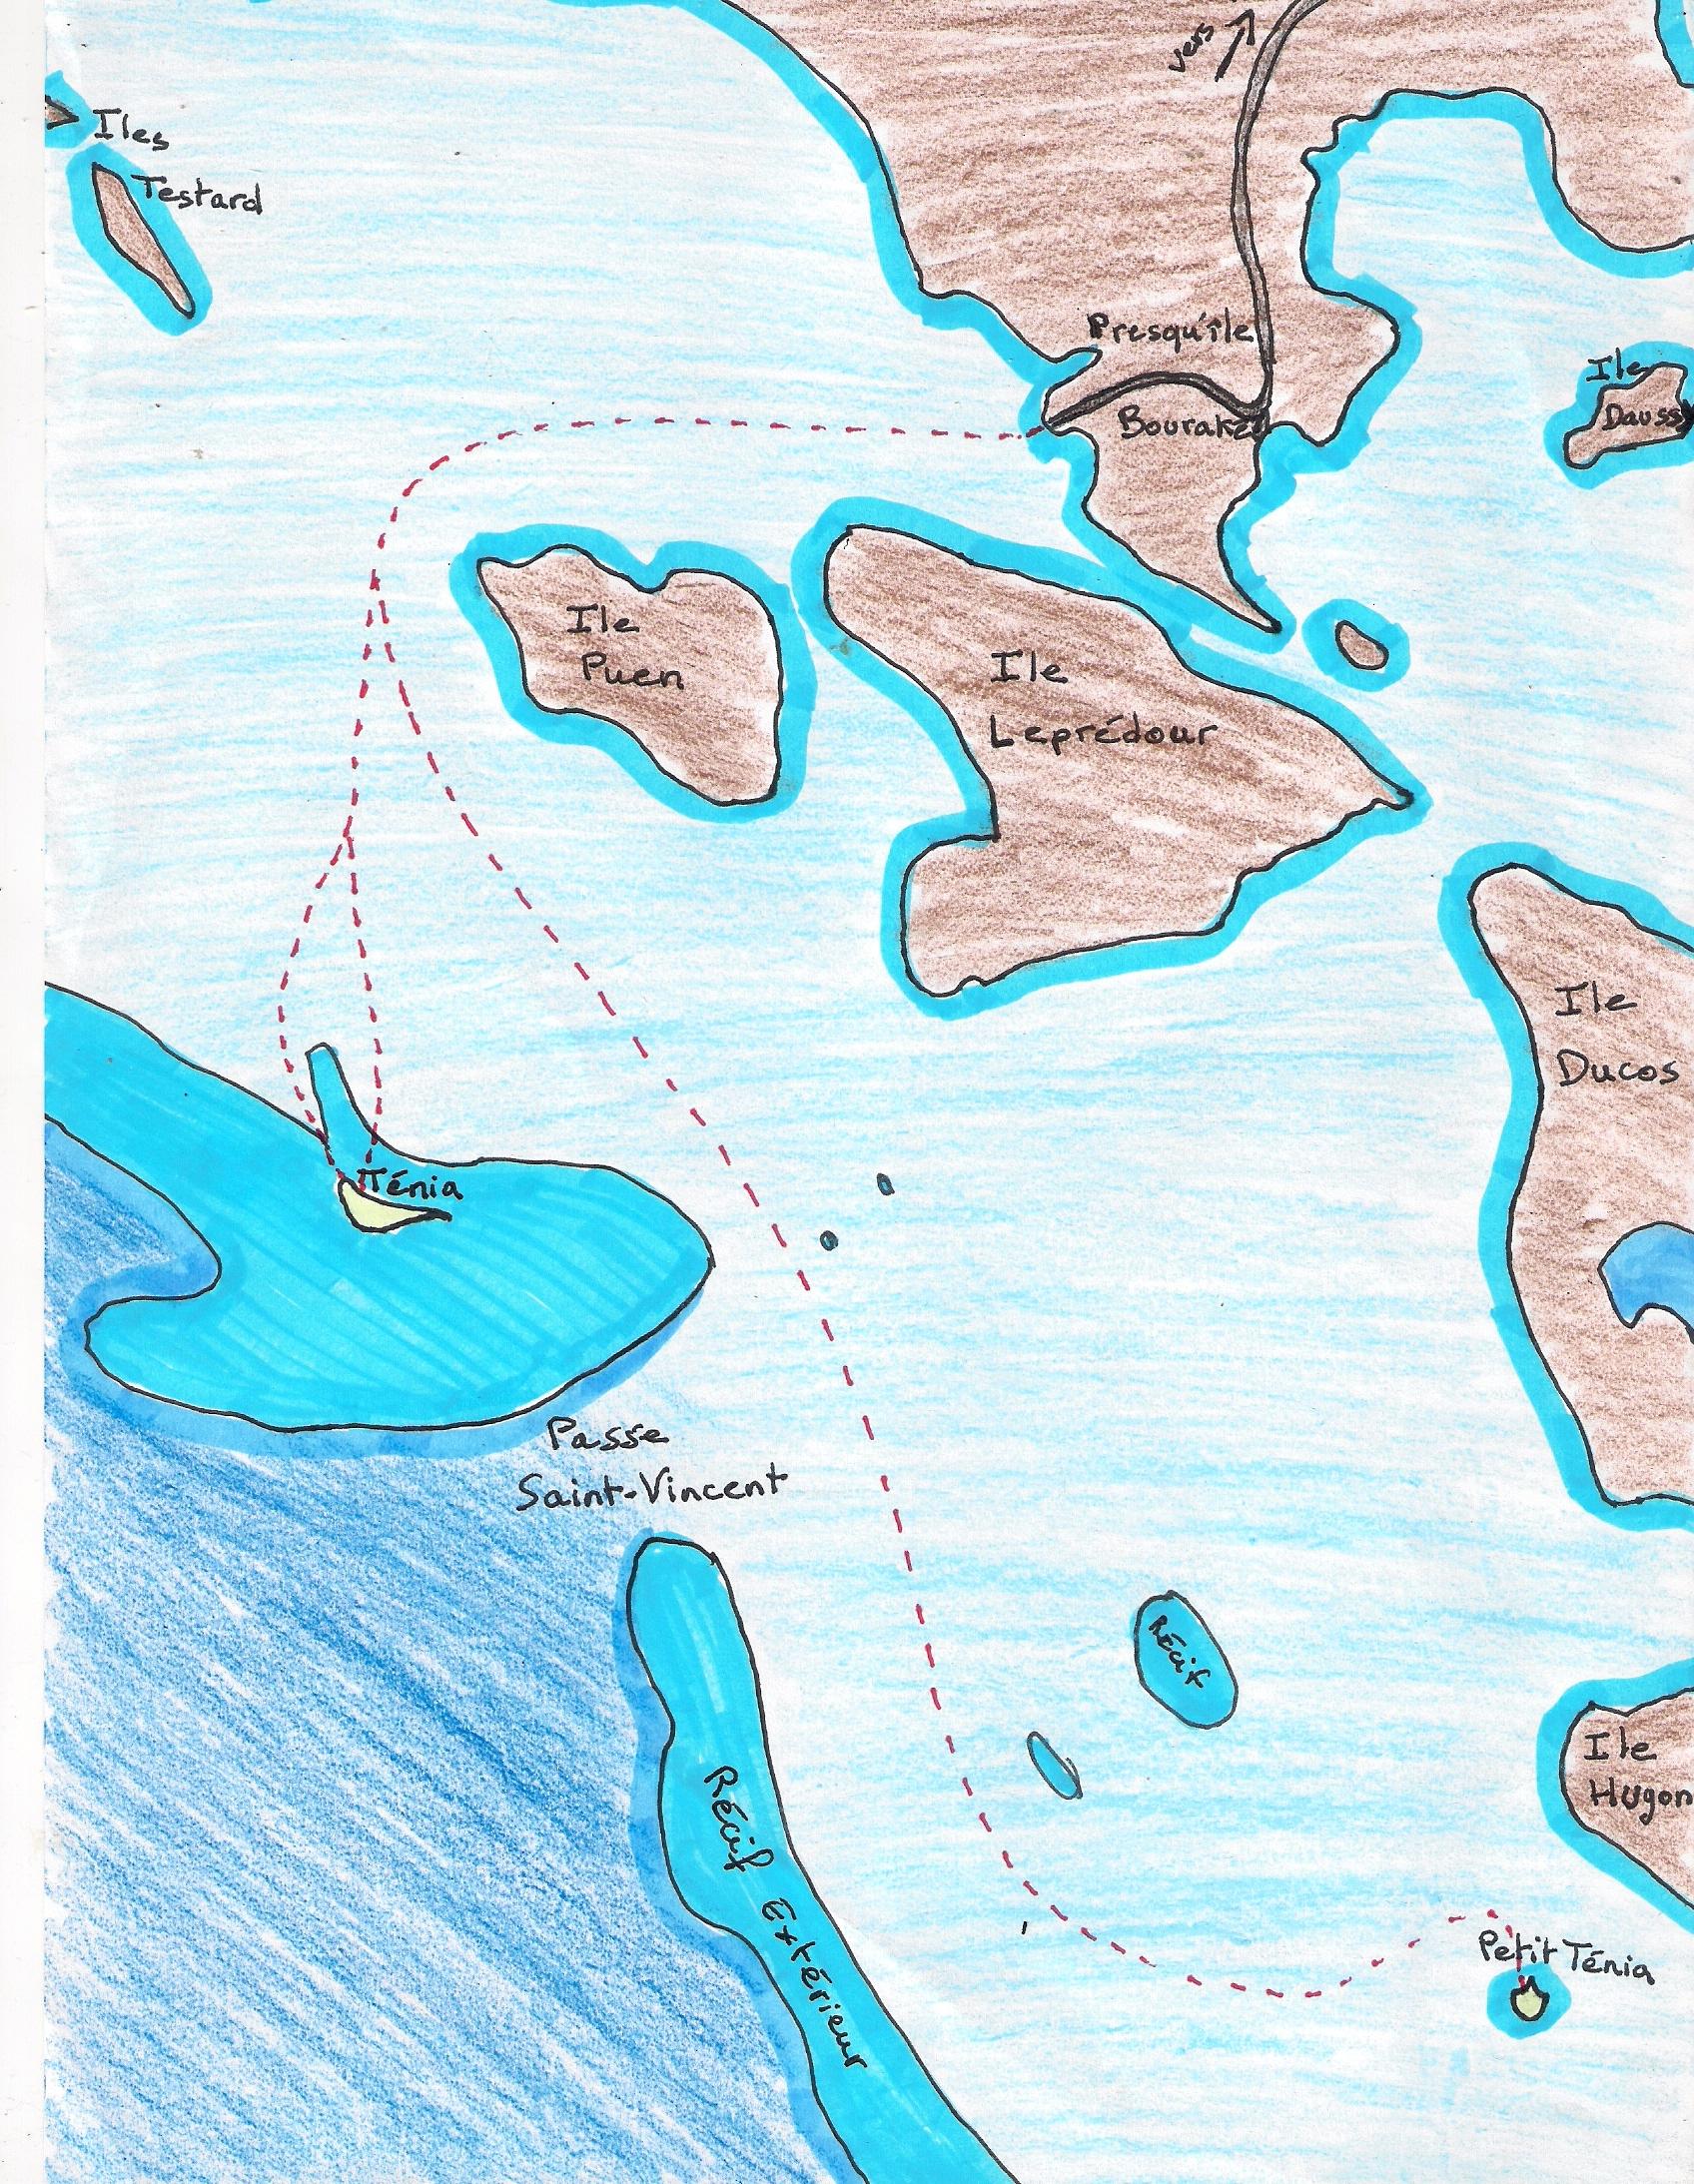 vers
Iles
Testard
Presqu'île
Bouraké
Ile
Daussy
Ile
Puen
Ile
Leprédour
Ile
Ducos
Ténia
Passe
Saint-Vincent
Récif
Récif Extérieur
Ile
Hugon
Petit Ténia